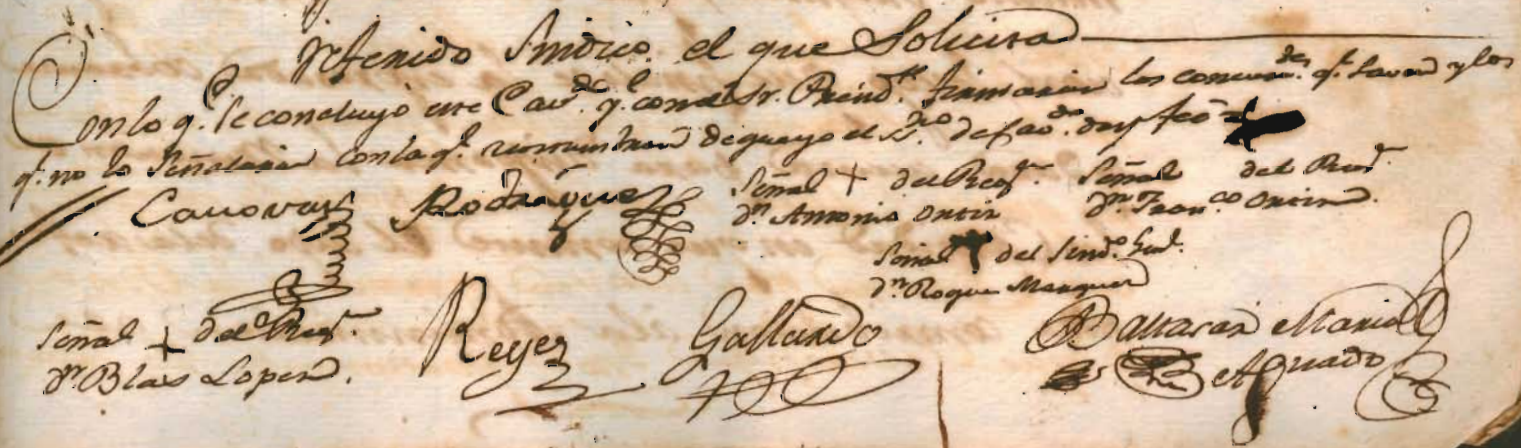 referido Sindico. el que Solicita
Con lo q.e Se concluyó este Cav.do q.e con el Sr. Presid.te firmaran los concurr.tes q.e Saven y los
q.e no lo Señalaran con la q.e acostumbran de q.e yo el S.rio de Cav.do doy feé =
Canovas Rodriguez Señal + del Reg.r Señal del Reg.r
d.n Antonio Ortiz d.n Fran.co Ortiz
Señal del Sind.o Gral.
d.n Roque Marquez
Señal + del Reg.r Reyes Gallardo Baltasar Maria
d.n Blas Lopez. Aguado